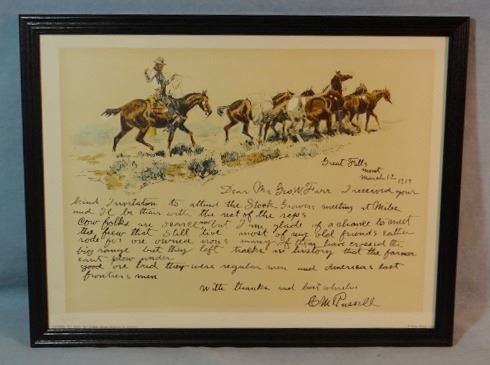 Great Falls
Mont
March 12 1919
Dear Mr Geo W Farr I received your
kind Invitation to attend the Stock Growers meeting at Miles
and Il be thair with the rest of the reps
Cow folks are scarce now but I'm glade of a chance to meet
the few that still live most of my old friends eather
rode for ore owned irons many of them have crossed the
big range but they left tracks in history that the farmer
cant plow under
good ore bad they were regular men and Americas last
frontiers men
With thanks and best whishes
C M Russell